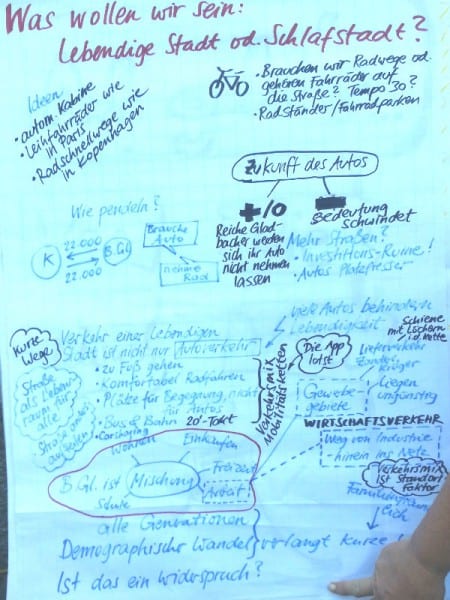 Was wollen wir sein:
Lebendige Stadt od. Schlafstadt?
Ideen
• autom. Kabine
• Leihfahrräder wie
in Paris
• Radschnellwege wie
in Kopenhagen
• Brauchen wir Radwege od.
gehören Fahrräder auf
die Straße? Tempo 30?
• Radständer/Fahrradparken
Zukunft des Autos
+/0
Reiche Glad-
bacher werden
sich ihr Auto
nicht nehmen
lassen
Bedeutung
schwindet
Mehr Straßen?
• Investitions-Ruine!
• Autos Platzfresser
Wie pendeln?
K 22.000 B.Gl.
22.000
Brauche
Auto
nehme
Rad
viele Autos behindern
Lebendigkeit
Kurze
Wege
Verkehr einer Lebendigen
Stadt ist nicht nur Autoverkehr
• zu Fuß gehen
• Komfortabel Radfahren
• Plätze für Begegnung, nicht
für Autos
• Bus & Bahn 20'-Takt
• Carsharing
Straße
als Lebens
raum für
alle
Straße anders
aufteilen
Verkehrsmix
Mobilitätsketten
Die App
lotst
Schiene
mit Löchern
i.d. Kette
Lieferverkehr
Zanders
Krüger
Liegen
ungünstig
Gewerbe-
gebiete
WIRTSCHAFTSVERKEHR
Weg von Industrie
- hinein ins Netz
Verkehrsmix
ist Standort
Faktor
Familienfreund
lich
Wohnen
Einkaufen
Freizeit
Arbeit
Schule
B.Gl. ist Mischung
alle Generationen
Demographische Wandel verlangt kurze
Ist das ein Widerspruch?